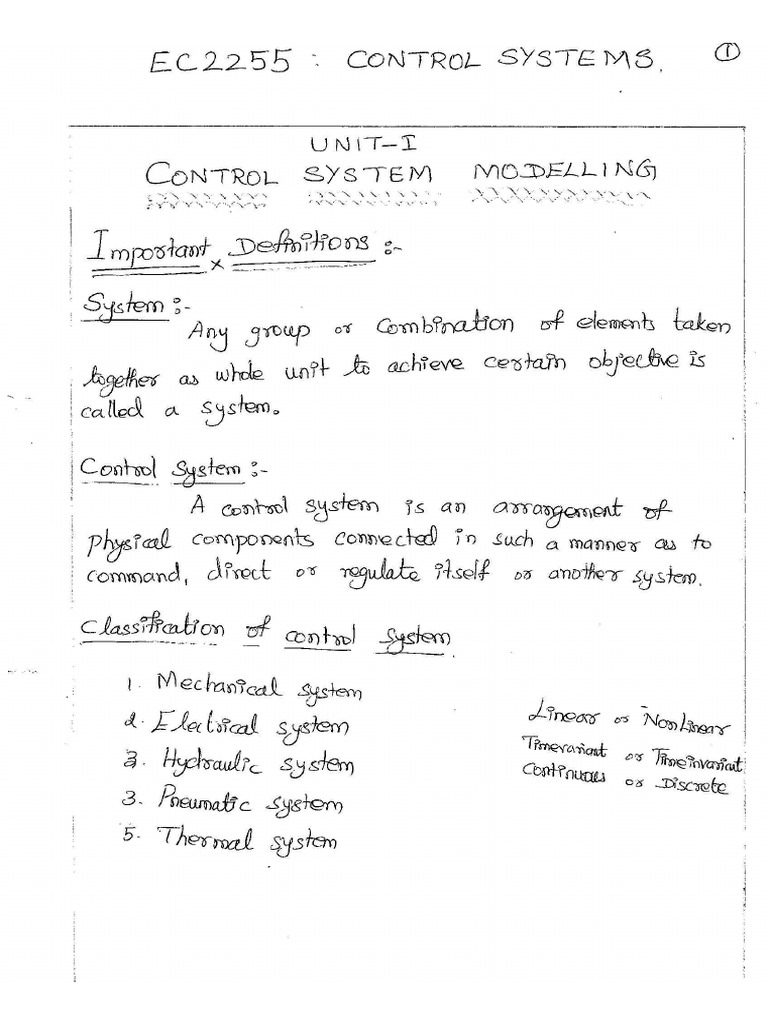 EC2255 : CONTROL SYSTEMS. 1
UNIT-I
CONTROL SYSTEM MODELLING
Important Definitions :-
System :-
Any group or combination of elements taken
together as whole unit to achieve certain objective is
called a system.
Control System :-
A control system is an arrangement of
physical components connected in such a manner as to
command, direct or regulate itself or another system.
Classification of control system
1. Mechanical system
2. Electrical system
3. Hydraulic system
3. Pneumatic system
5. Thermal system
Linear or NonLinear
Timevariant or Timeinvariant
Continuous or Discrete